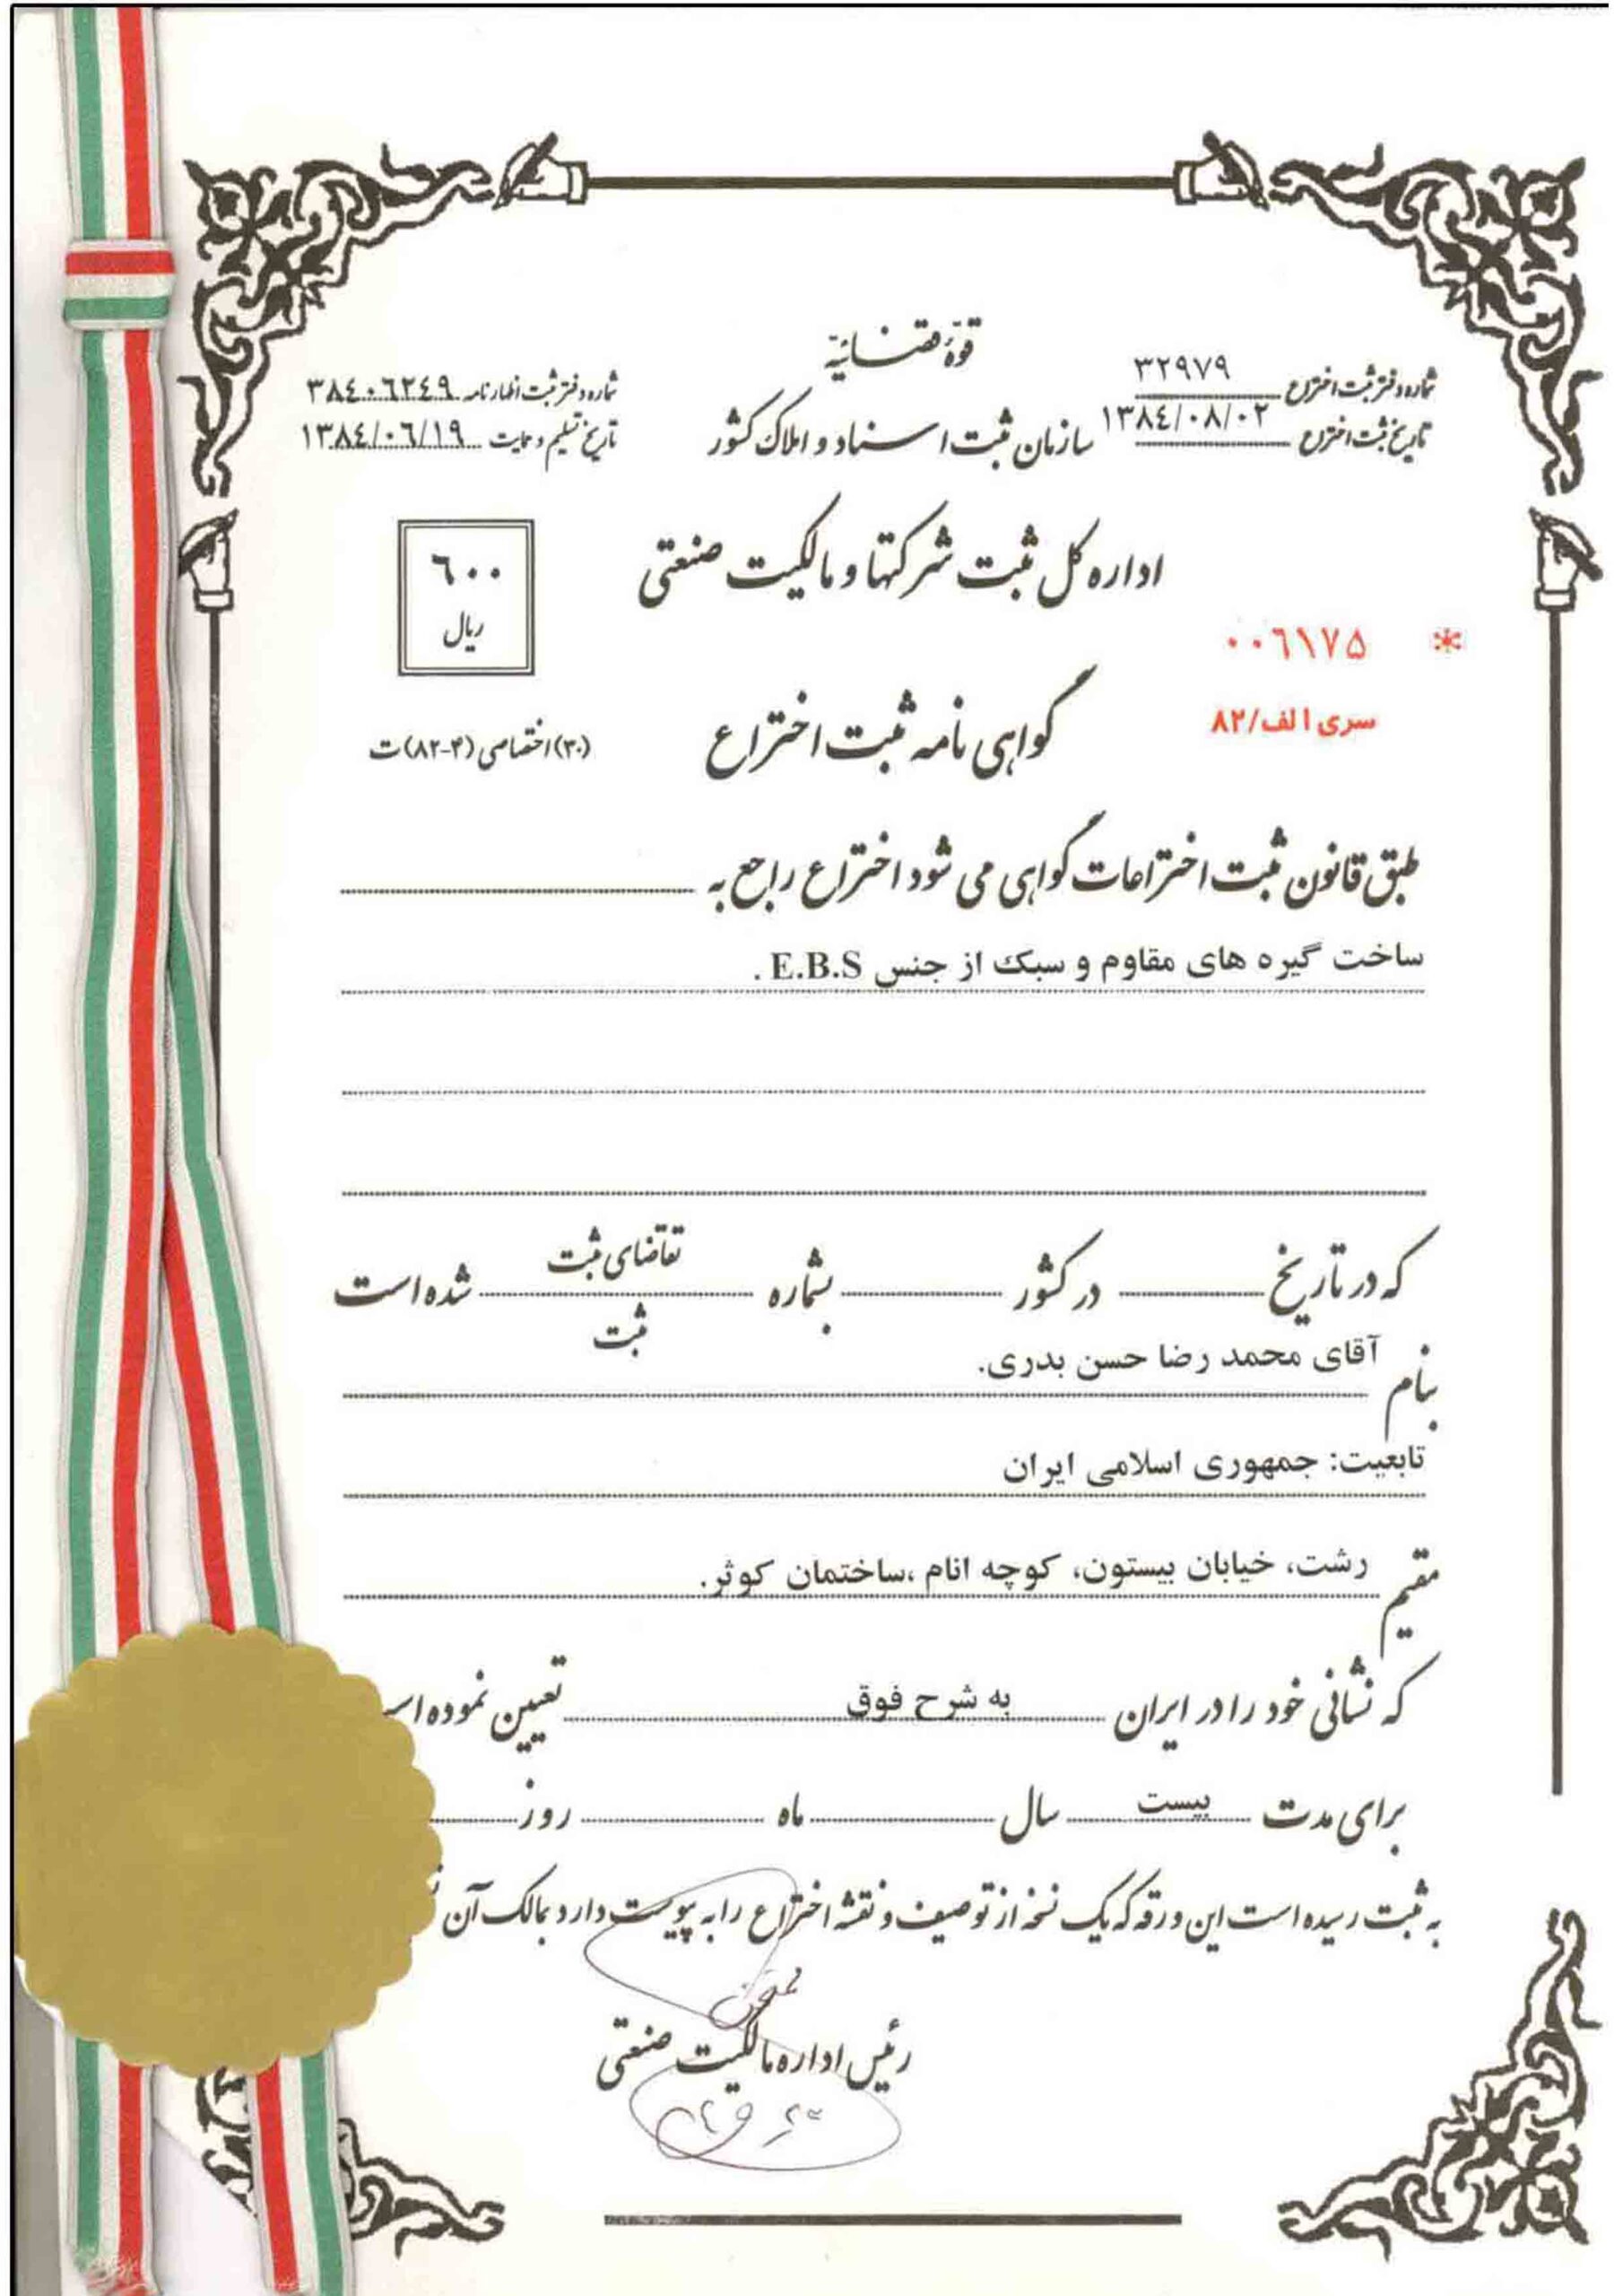 قوّهٔ قضائیّه
شماره دفتر ثبت اختراع ۳۲۹۷۹
تاریخ ثبت اختراع ۱۳۸٤/۰۸/۰۲
سازمان ثبت اسناد و املاک کشور
شماره دفتر ثبت اظهارنامه ۳۸٤۰٦۲٤۹
تاریخ تسلیم و حمایت ۱۳۸٤/۰٦/۱۹
اداره کل ثبت شرکتها و مالکیت صنعتی
٦۰۰
ریال
* ۰۰٦۱۷۵
سری الف/۸۲
گواهی نامه ثبت اختراع
(۳۰)اختصاصی (۴-۸۲)ت
طبق قانون ثبت اختراعات گواهی می شود اختراع راجع به
ساخت گیره های مقاوم و سبک از جنس E.B.S .
که در تاریخ در کشور بشماره تقاضای ثبت شده است
ثبت
بنام آقای محمد رضا حسن بدری.
تابعیت: جمهوری اسلامی ایران
مقیم رشت، خیابان بیستون، کوچه انام ،ساختمان کوثر.
که نشانی خود را در ایران به شرح فوق تعیین نموده
برای مدت بیست سال ماه روز
به ثبت رسیده است این ورقه که یک نسخه از توصیف و نقشه اختراع را به پیوست دارد بمالک آن
رئیس اداره مالکیت صنعتی